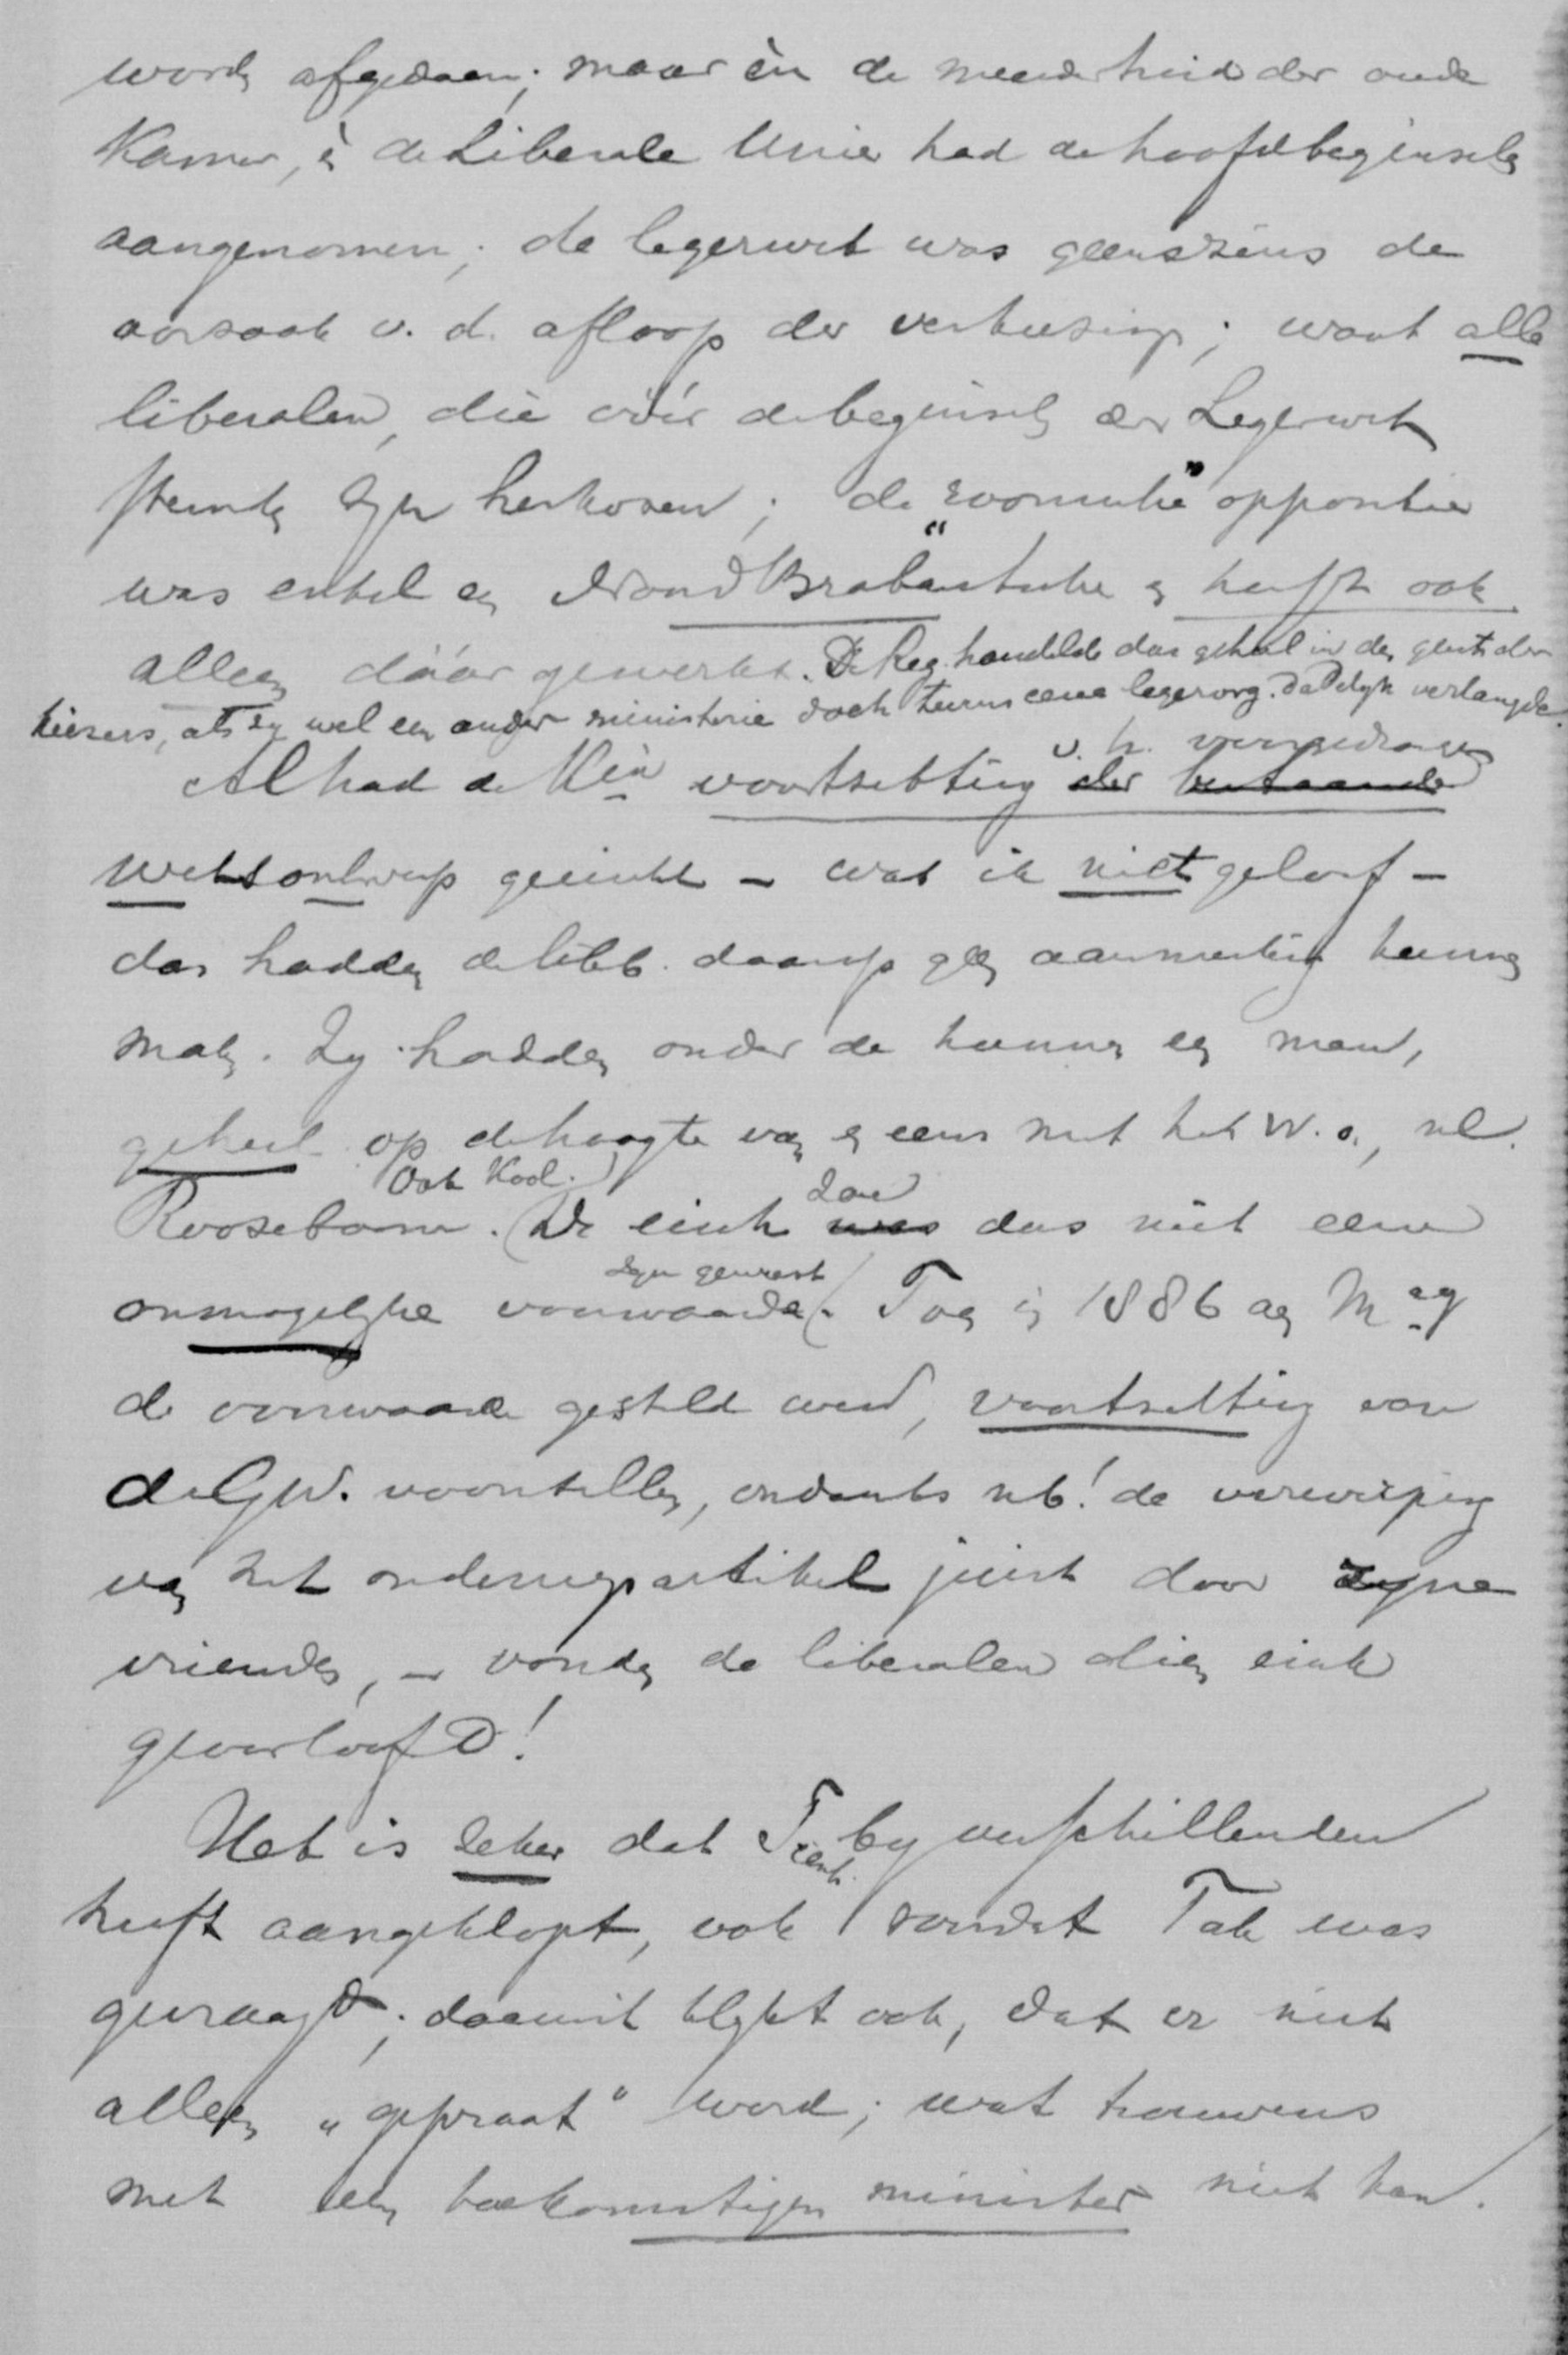 worden afgedaan; maar èn de meerderheid der oude
Kamer, è de Liberale Unie had de hoofdbeginselen
aangenomen; de legerwet was geenszins de
oorzaak v. d. afloop der verkiezing; want alle
liberalen, die vóór de beginselen der Legerwet
stemden zijn herkozen; de "roomsche" oppositie
was enkel een Noord Brabantsche en heeft ook
alleen dáár gewerkt. De Reg. handelde dus geheel in den geest der
kiezers, als zij wel een ander ministerie doch tevens eene legerorg. dadelyk verlangde.
Al had de Kon. voortzetting der bestaande v. h. voorgedragen
wetsontwerp geëischt - wat ik niet geloof -
dan hadden de libb. daarop geen aanmerking kunnen
maken. Zy hadden onder de hunnen een man,
geheel op de hoogte van en eens met het W.o., nl.
Roosebom. (Ook Kool.) De eisch was zou dus niet eene
onmogelyke voorwaarde zyn geweest. Toen in 1886 aan Mᵃʸ
de voorwaarde gesteld werd, voortzetting van
de GW. voorstellen, ondanks nb! de verwerping
van het onderwysartikel juist door zyne
vrienden, - vonden de liberalen dien eisch
geoorloofd!
Het is zeker dat Tienh. by verschillenden
heeft aangeklopt, ook vóórdat Tak was
gevraagd; daaruit blykt ook, dat er niet
alleen "gepraat" werd; wat trouwens
met een toekomstigen minister niet kan.